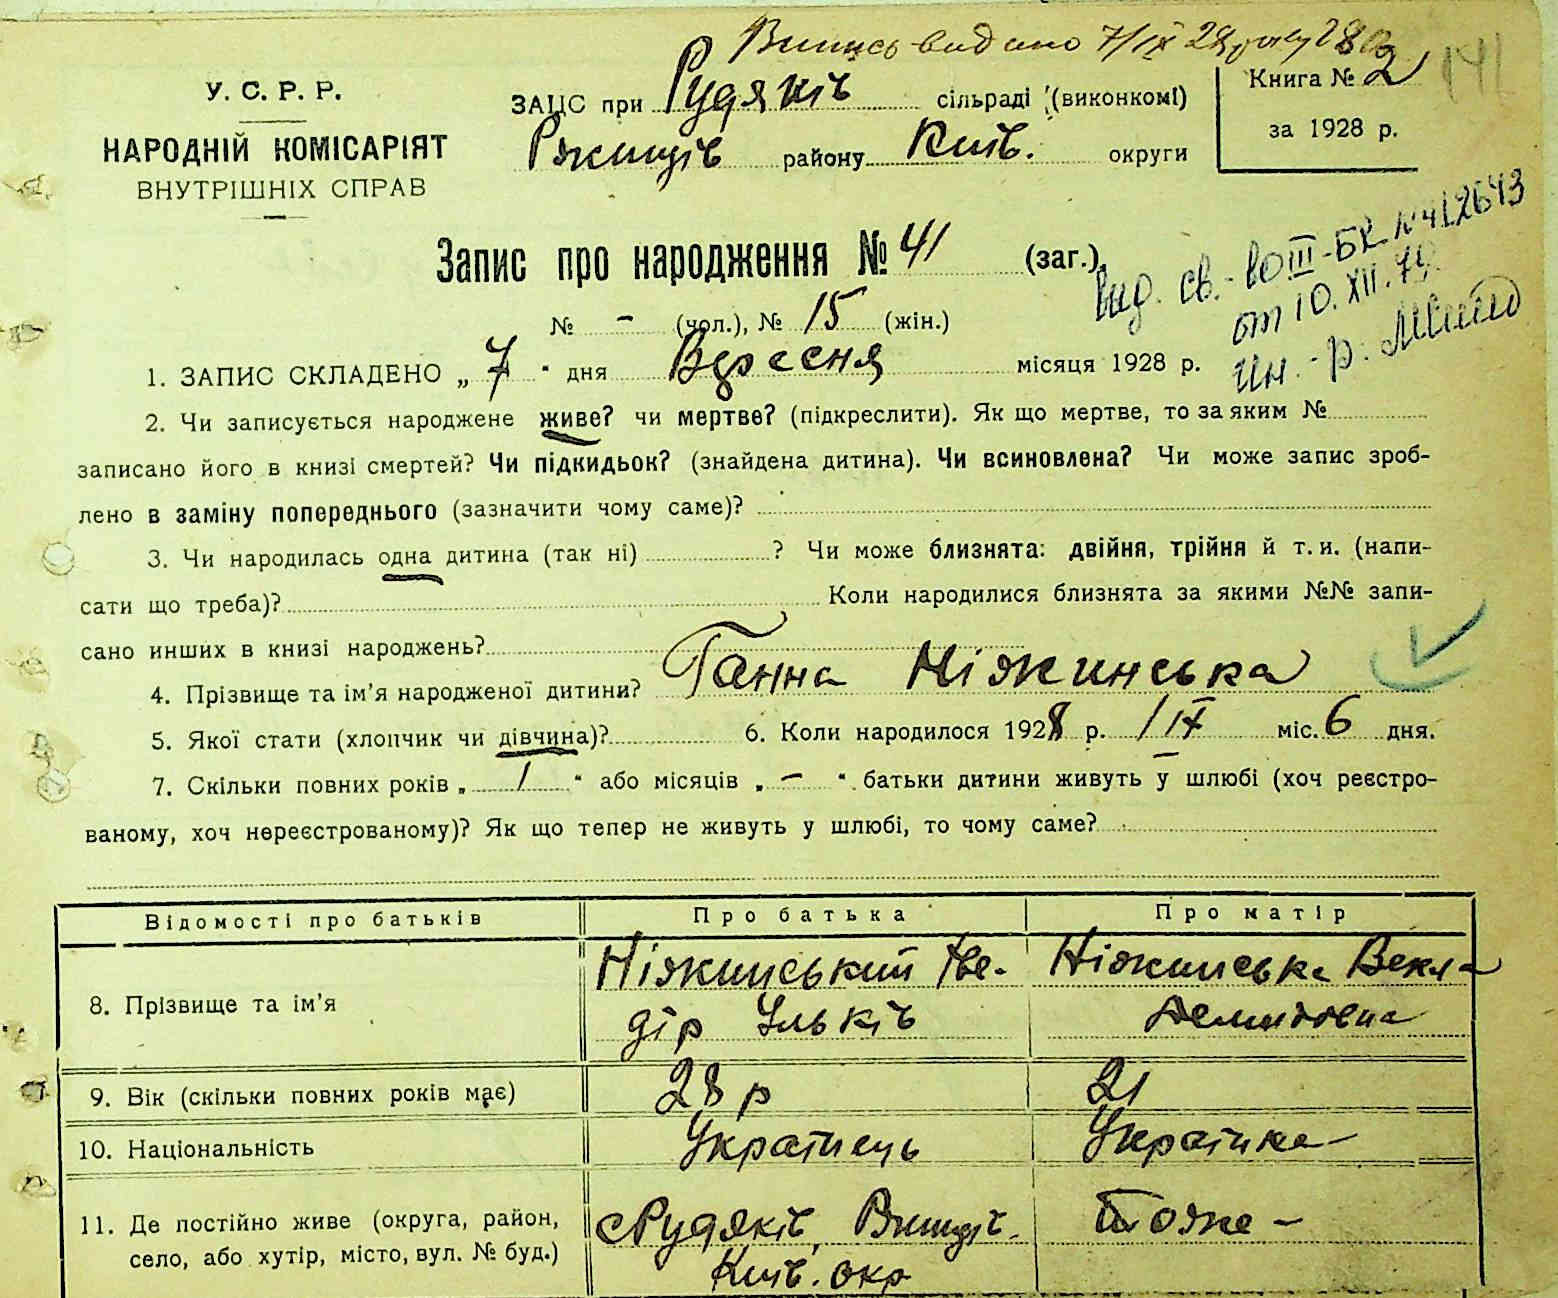 Випись видано 7/IX 28 року
У. С. Р. Р.
НАРОДНІЙ КОМІСАРІЯТ
ВНУТРІШНІХ СПРАВ
ЗАЦС при Рудяків сільраді (виконкомі)
Ржищів району Київ. округи
Книга № 2
за 1928 р.
141
Запис про народження № 41 (заг.),
№ – (чол.), № 15 (жін.)
вид. св.-во III-БК № 412643
от 10.XII.74
1. ЗАПИС СКЛАДЕНО „ 7 “ дня Вересня місяця 1928 р.
2. Чи записується народжене живе? чи мертве? (підкреслити). Як що мертве, то за яким №
записано його в книзі смертей? Чи підкидьок? (знайдена дитина). Чи всиновлена? Чи може запис зроб-
лено в заміну попереднього (зазначити чому саме)?
3. Чи народилась одна дитина (так ні) ? Чи може близнята: двійня, трійня й т. и. (напи-
сати що треба)? Коли народилися близнята за якими №№ запи-
сано инших в книзі народжень?
4. Прізвище та ім’я народженої дитини? Ганна Ніжинська
5. Якої стати (хлопчик чи дівчина)? 6. Коли народилося 1928 р. IX міс. 6 дня.
7. Скільки повних років „ 1 “ або місяців „ – “ батьки дитини живуть у шлюбі (хоч реєстро-
ваному, хоч нереєстрованому)? Як що тепер не живуть у шлюбі, то чому саме?
Відомості про батьків Про батька Про матір
8. Прізвище та ім’я Ніжинський Тве- Ніжинська Векла
дір Ільків Демидовна
9. Вік (скільки повних років має) 28 р 21
10. Національність Українець Українка
11. Де постійно живе (округа, район, Рудяків, Ржищів. Тоже –
село, або хутір, місто, вул. № буд.) Київ. окр